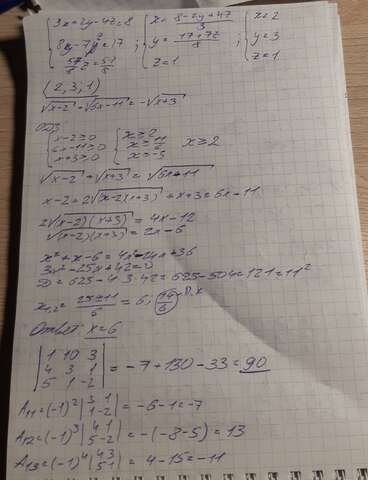 {3x+2y-4z=8 {x=(8-2y+4z)/3 {x=2
{8y-7z=17 ; {y=(17+7z)/8 ; {y=3
{57/8 z=57/8 {z=1 {z=1
(2,3,1)
√(x-2) - √(6x-11) = -√(x+3)
ОДЗ:
{x-2≥0 {x≥2
{6x-11≥0 {x≥11/6 x≥2
{x+3≥0 {x≥-3
√(x-2) + √(x+3) = √(6x-11)
x-2+2√((x-2)(x+3))+x+3=6x-11
2√((x-2)(x+3)) = 4x-12
√((x-2)(x+3)) = 2x-6
x²+x-6=4x²-24x+36
3x²-25x+42=0
D=625-4·3·42=625-504=121=11²
x₁,₂=(25±11)/6=6; 14/6
Ответ: x=6
|1 10 3|
|4 3 1| = -7+130-33=90
|5 1 -2|
A11=(-1)²|3 1; 1 -2|=-6-1=-7
A12=(-1)³|4 1; 5 -2|=-(-8-5)=13
A13=(-1)⁴|4 3; 5 1|=4-15=-11